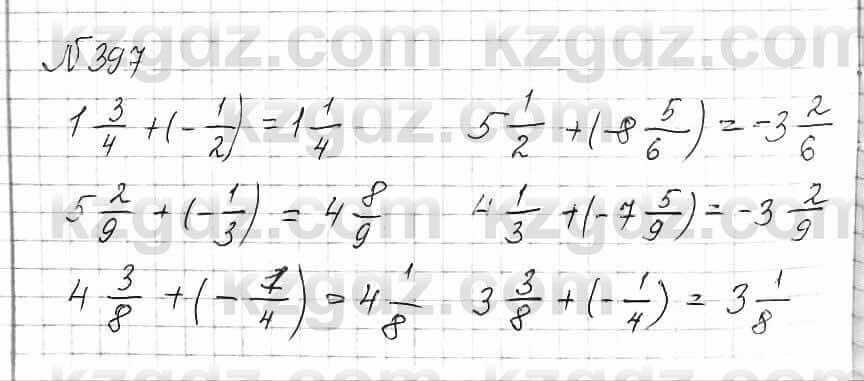 №397
1 3/4 + (- 1/2) = 1 1/4    5 1/2 + (-8 5/6) = -3 2/6
5 2/9 + (- 1/3) = 4 8/9    4 1/3 + (-7 5/9) = -3 2/9
4 3/8 + (- 1/4) = 4 1/8    3 3/8 + (- 1/4) = 3 1/8
kzgdz.com